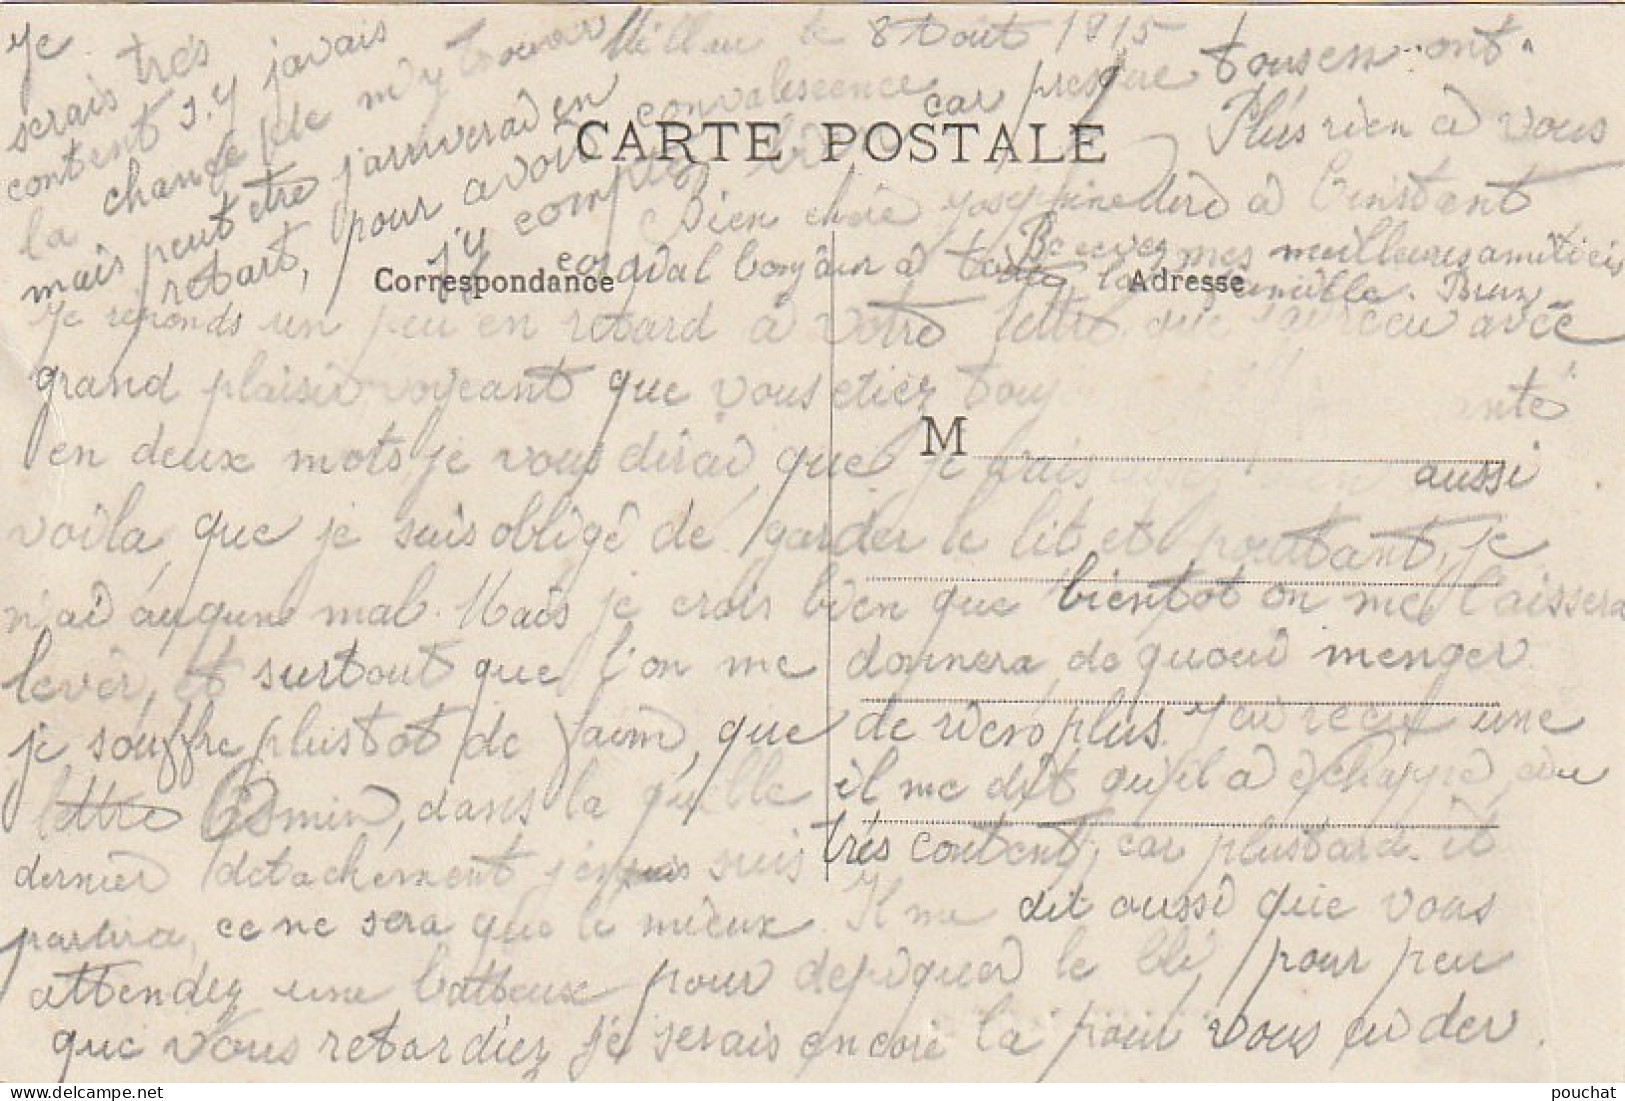 Millau le 8 Août 1915
CARTE POSTALE
Bien chère Joséphine
Correspondance
Adresse
Je reponds un peu en retard à votre lettre que j'ai recu avec
grand plaisir voyeant que vous etiez tous
M
en deux mots je vous dirai que je vais aussi bien aussi
voila, que je suis obligé de garder le lit et pourtant, je
n'ai augune mal. Mais je crois bien que bientot on me laissera
lever, et surtout que l'on me donnera de quoui menger
je souffre plustot de faim, que de rien plus. J'ai recu une
lettre Cosmin, dans la quelle il me dit qu'il a echappé, au
dernier detachement j'en suis très content, car plustard it
partira, ce ne sera que le mieux. Il me dit aussi que vous
attendez une batteux pour depiquer le blé, pour peu
que vous retardiez je serais encore la pour vous eider.
Je
serais très
content s.y javais
la chance de m'y trouver
mais peut etre j'arriverai en
retart, pour avoir convalescence
j'y compte car presque tous en ont.
Plus rien à vous
dire à l'instant
bonjour à toute la famille.
Recevez mes meilleures amitiéis